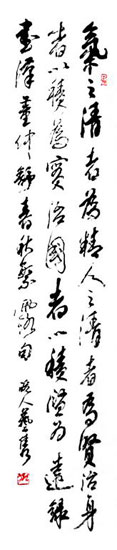 氣之清者為精人之清者為賢治身
者以積為寶治國者以積賢为道錄
漢董仲舒春秋繁露句